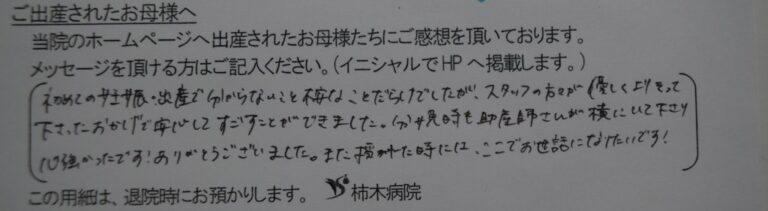 ご出産されたお母様へ
当院のホームページへ出産されたお母様たちにご感想を頂いております。
メッセージを頂ける方はご記入ください。(イニシャルでHPへ掲載します。)
初めての妊娠・出産で分からないこと不安なことだらけでしたが、スタッフの方々が優しくよりそって
下さったおかげで安心してすごすことができました。分娩時も助産師さんが横にいて下さり
心強かったです!ありがとうございました。また授かれた時には、ここでお世話になりたいです!
この用紙は、退院時にお預かりします。 柿木病院